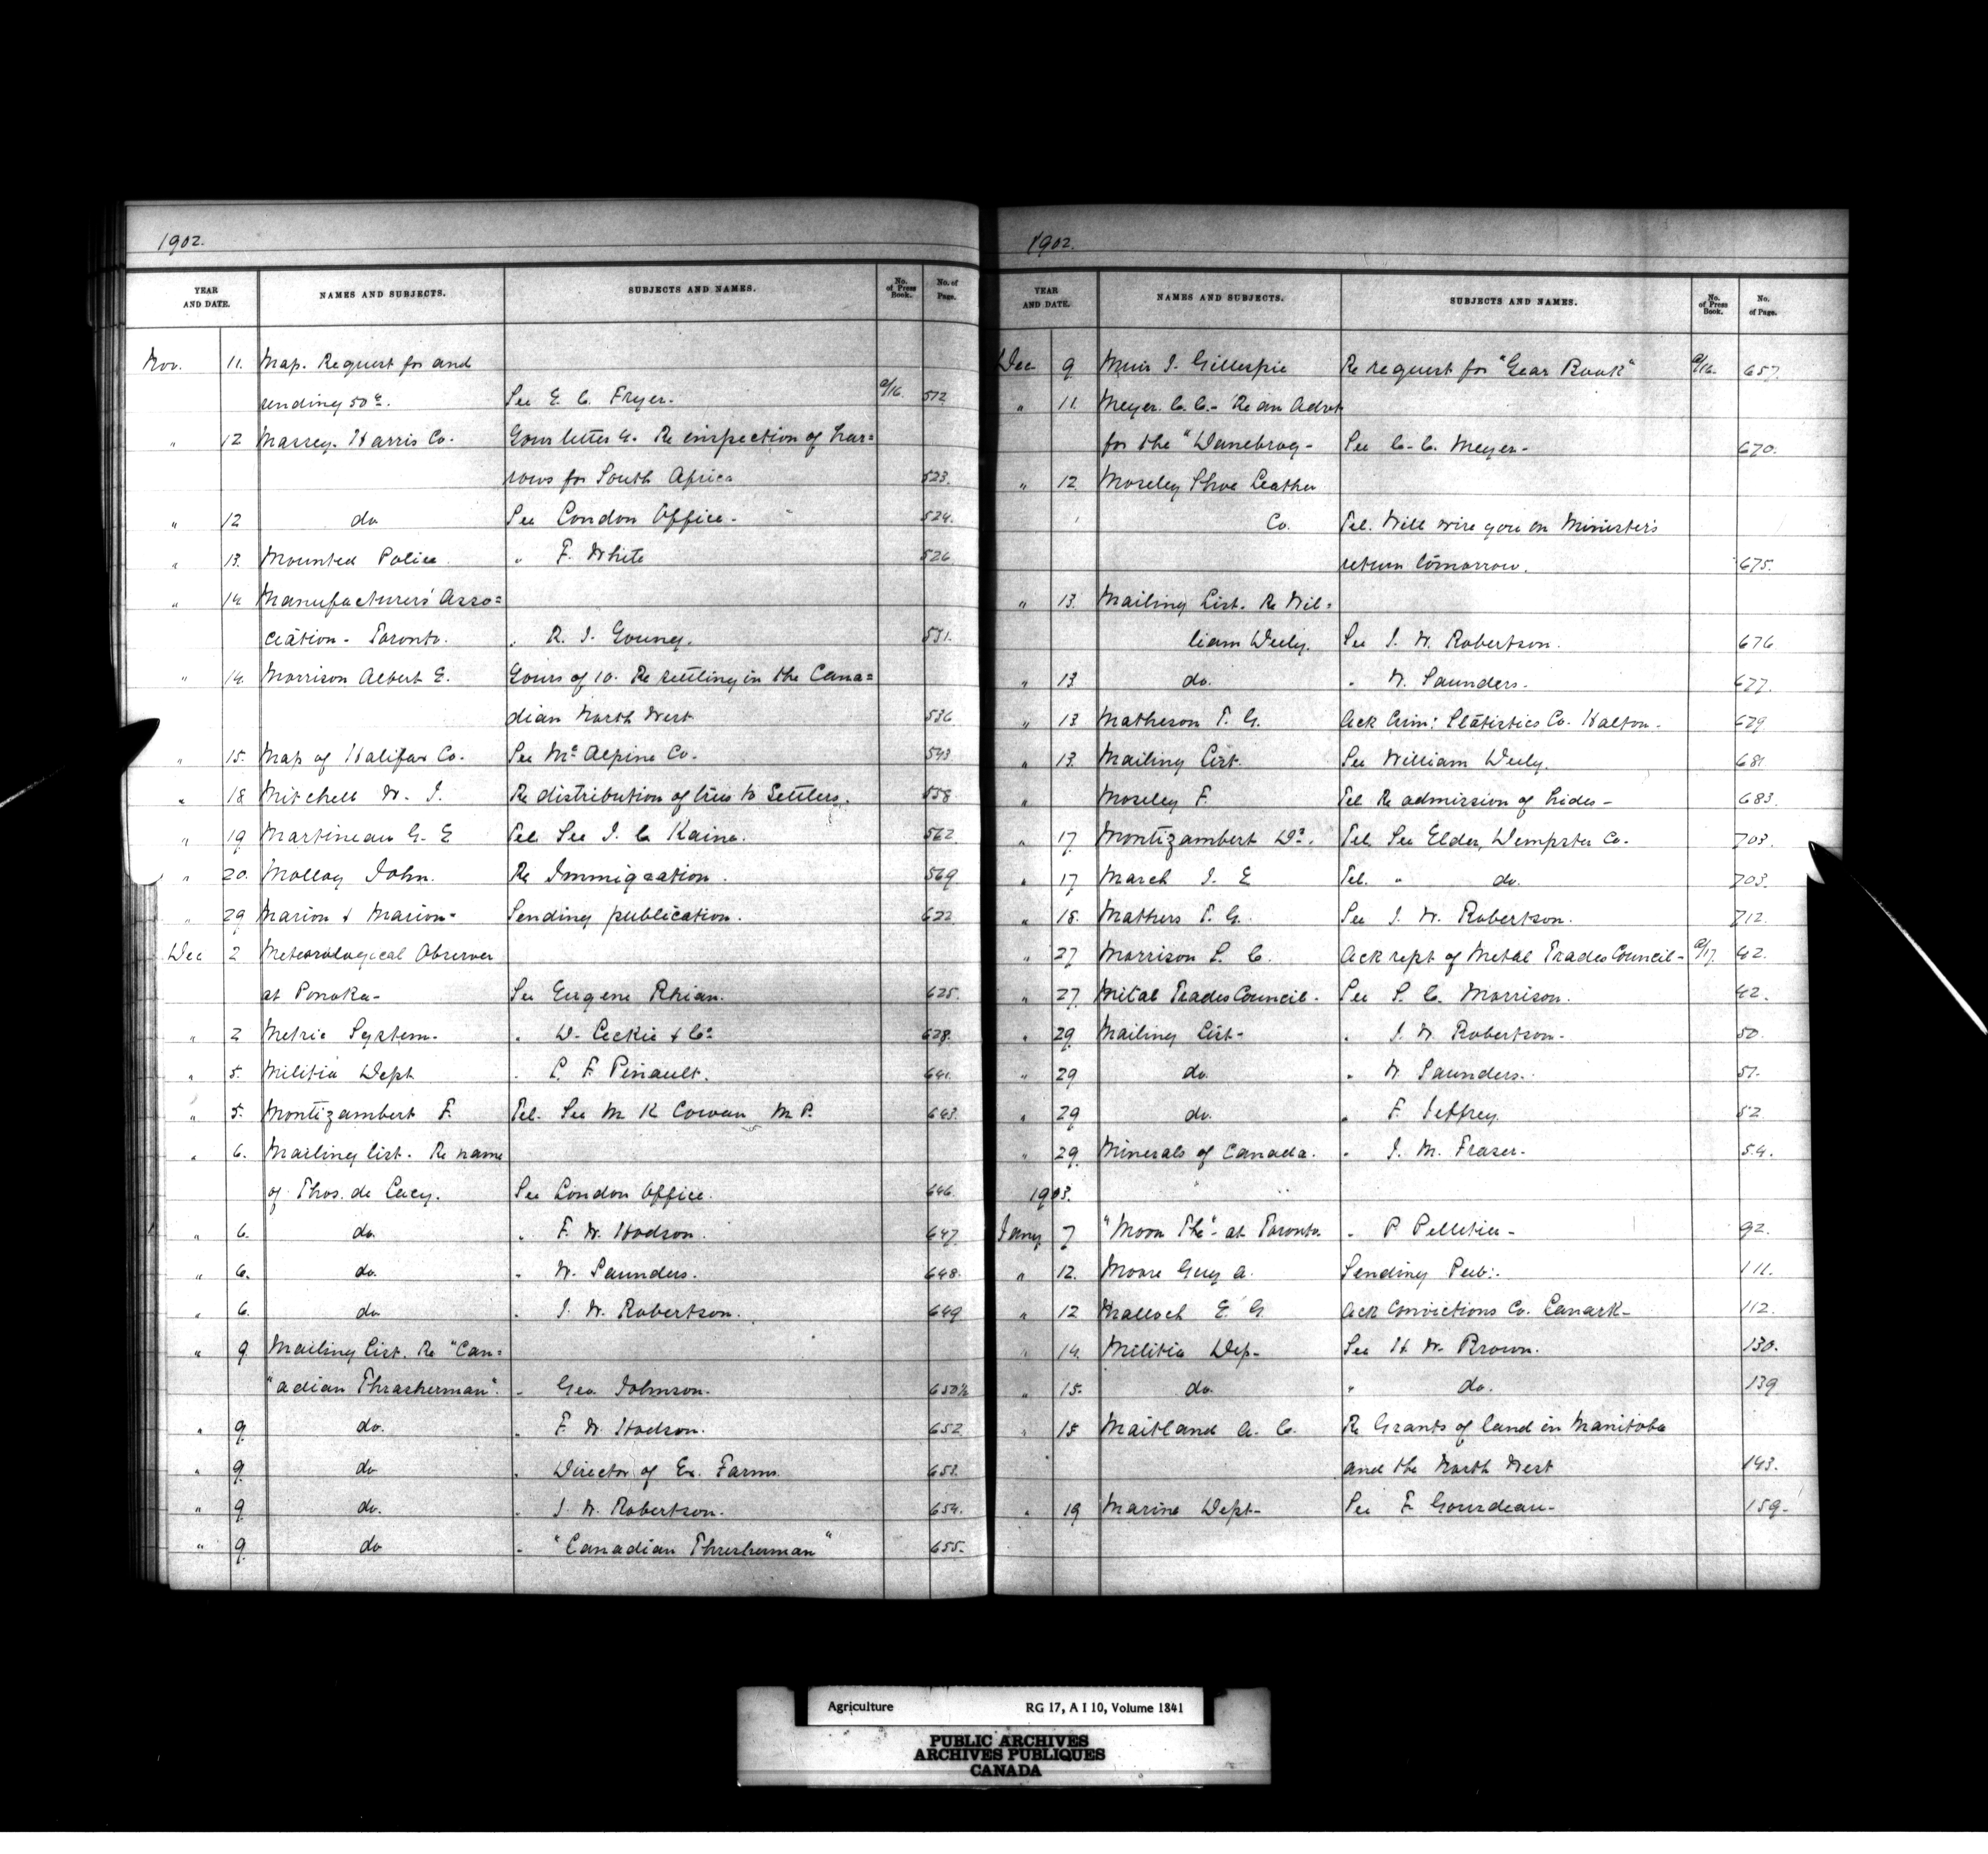 1902.
YEAR AND DATE. NAMES AND SUBJECTS. SUBJECTS AND NAMES. No. of Press Book. No. of Page.
Nov. 11. Map. Request for and
sending 50 c. See E. C. Fryer. a/16 512
" 12 Massey. Harris Co. Your letter 4. Re inspection of har=
rows for South Africa 523.
" 12 do See London Office. 524.
" 13. Mounted Police. " F. White 526
" 14. Manufacturers' Asso=
ciation - Toronto. " R. J. Young. 531.
" 14. Morrison Albert E. Yours of 10. Re settling in the Cana=
dian North West 536
" 15. Map of Halifax Co. See Mc Alpine Co. 543.
" 18 Mitchell W. J. Re distribution of trees to Settlers. 558.
" 19 Martineau G. E Tel. See J. C Kaine. 562.
" 20. Molloy John. Re Immigration. 569
" 29 Marion & Marion - Sending publication. 622
Dec 2 Meteorological Observer
at Ponoka - See Eugene Rhian. 625.
" 2 Metric System. " D. Leckie & Co. 628.
" 5. Militia Dept " L. F. Pinault. 641.
" 5. Montizambert F. Tel. See M. K Cowan M.P. 643.
" 6. Mailing list. Re name
of Thos. de Lacy. See London Office. 646.
" 6. do. " F. W. Hodson. 647.
" 6. do. " W. Saunders. 648.
" 6. do " J. W. Robertson. 649
" 9 Mailing List. Re "Can=
"adian Thrasherman". " Geo Johnson. 650½
" 9 do. " F. W. Hodson. 652
" 9. do " Director of Ex. Farms. 653.
" 9 do. " J. W. Robertson. 654.
" 9. do " "Canadian Thresherman" 655.
1902.
YEAR AND DATE. NAMES AND SUBJECTS. SUBJECTS AND NAMES. No. of Press Book. No. of Page.
Dec 9 Muir J. Gillespie Re request for "Year Book" a/16. 657.
" 11. Meyer. C. C. - Re an Advt
for the "Danebrog - See C. C. Meyer - 670.
" 12. Moseley Shoe Leather
Co. Tel. Will wire you on Minister's
return tomorrow. 675.
" 13. Mailing List. Re Wil=
liam Deely. See J. W. Robertson. 676
" 13. do. " W. Saunders. 677.
" 13 Matheson T. G. Ack Crim: Statistics Co. Halton. 679
" 13. Mailing List. See William Deely. 681
" Moseley F. Tel. Re admission of hides - 683.
" 17 Montizambert Dr. Tel. See Elder, Dempster Co. 703.
" 17 March J. E Tel. " do. 703.
" 18. Mathers T. G. See J. W. Robertson. 712.
" 27 Morrison S. C. Ack rept of Metal Trades Council - a/17. 42.
" 27 Metal Trades Council. See S. C. Morrison. 42.
" 29 Mailing List - " J. W Robertson - 50.
" 29 do. " W. Saunders. 51.
" 29 do. " F. Jeffrey. 52
" 29 Minerals of Canada. " J. M. Fraser. 54.
1903.
Jany 7 "Moon The" - at Toronto. " P Pelletier - 92.
" 12. Moore Guy A. Sending Pub:. 111.
" 12 Malloch E. G. Ack Convictions Co. Lanark - 112.
" 14. Militia Dep - See H. W. Brown. 130.
" 15. do. " do. 139
" 15 Maitland A. C. Re Grants of land in Manitoba
and the North West 143.
" 19 Marine Dept - See F. Gourdeau - 159 -
Agriculture RG 17, A I 10, Volume 1841
PUBLIC ARCHIVES
ARCHIVES PUBLIQUES
CANADA